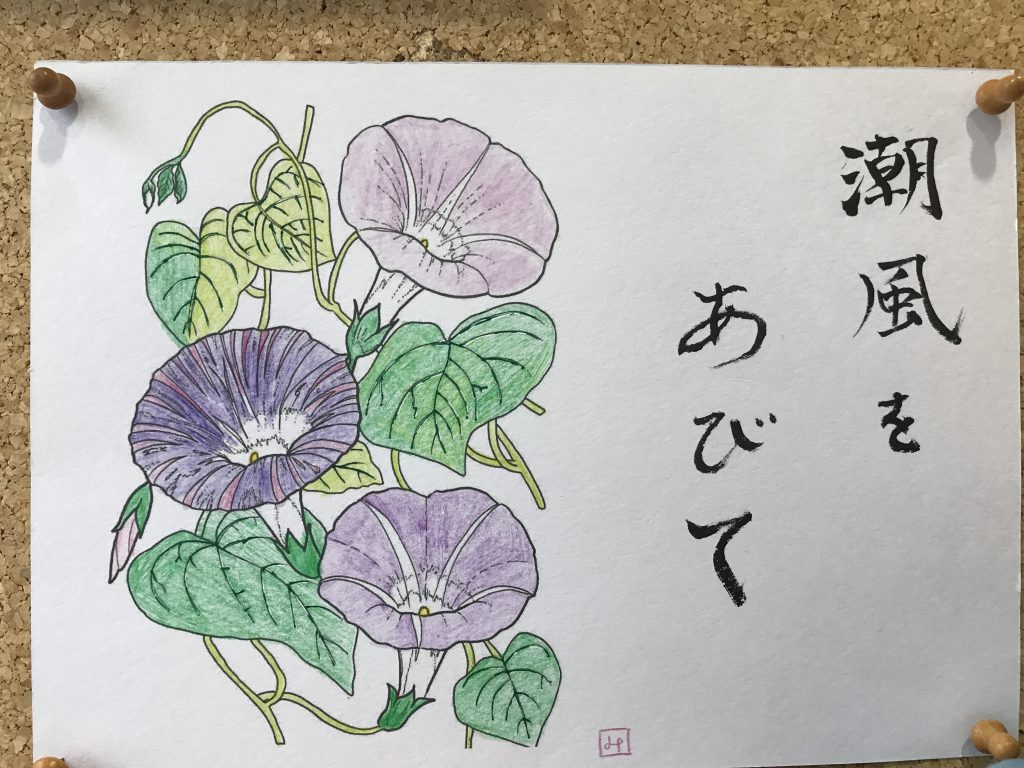 潮風を
あびて